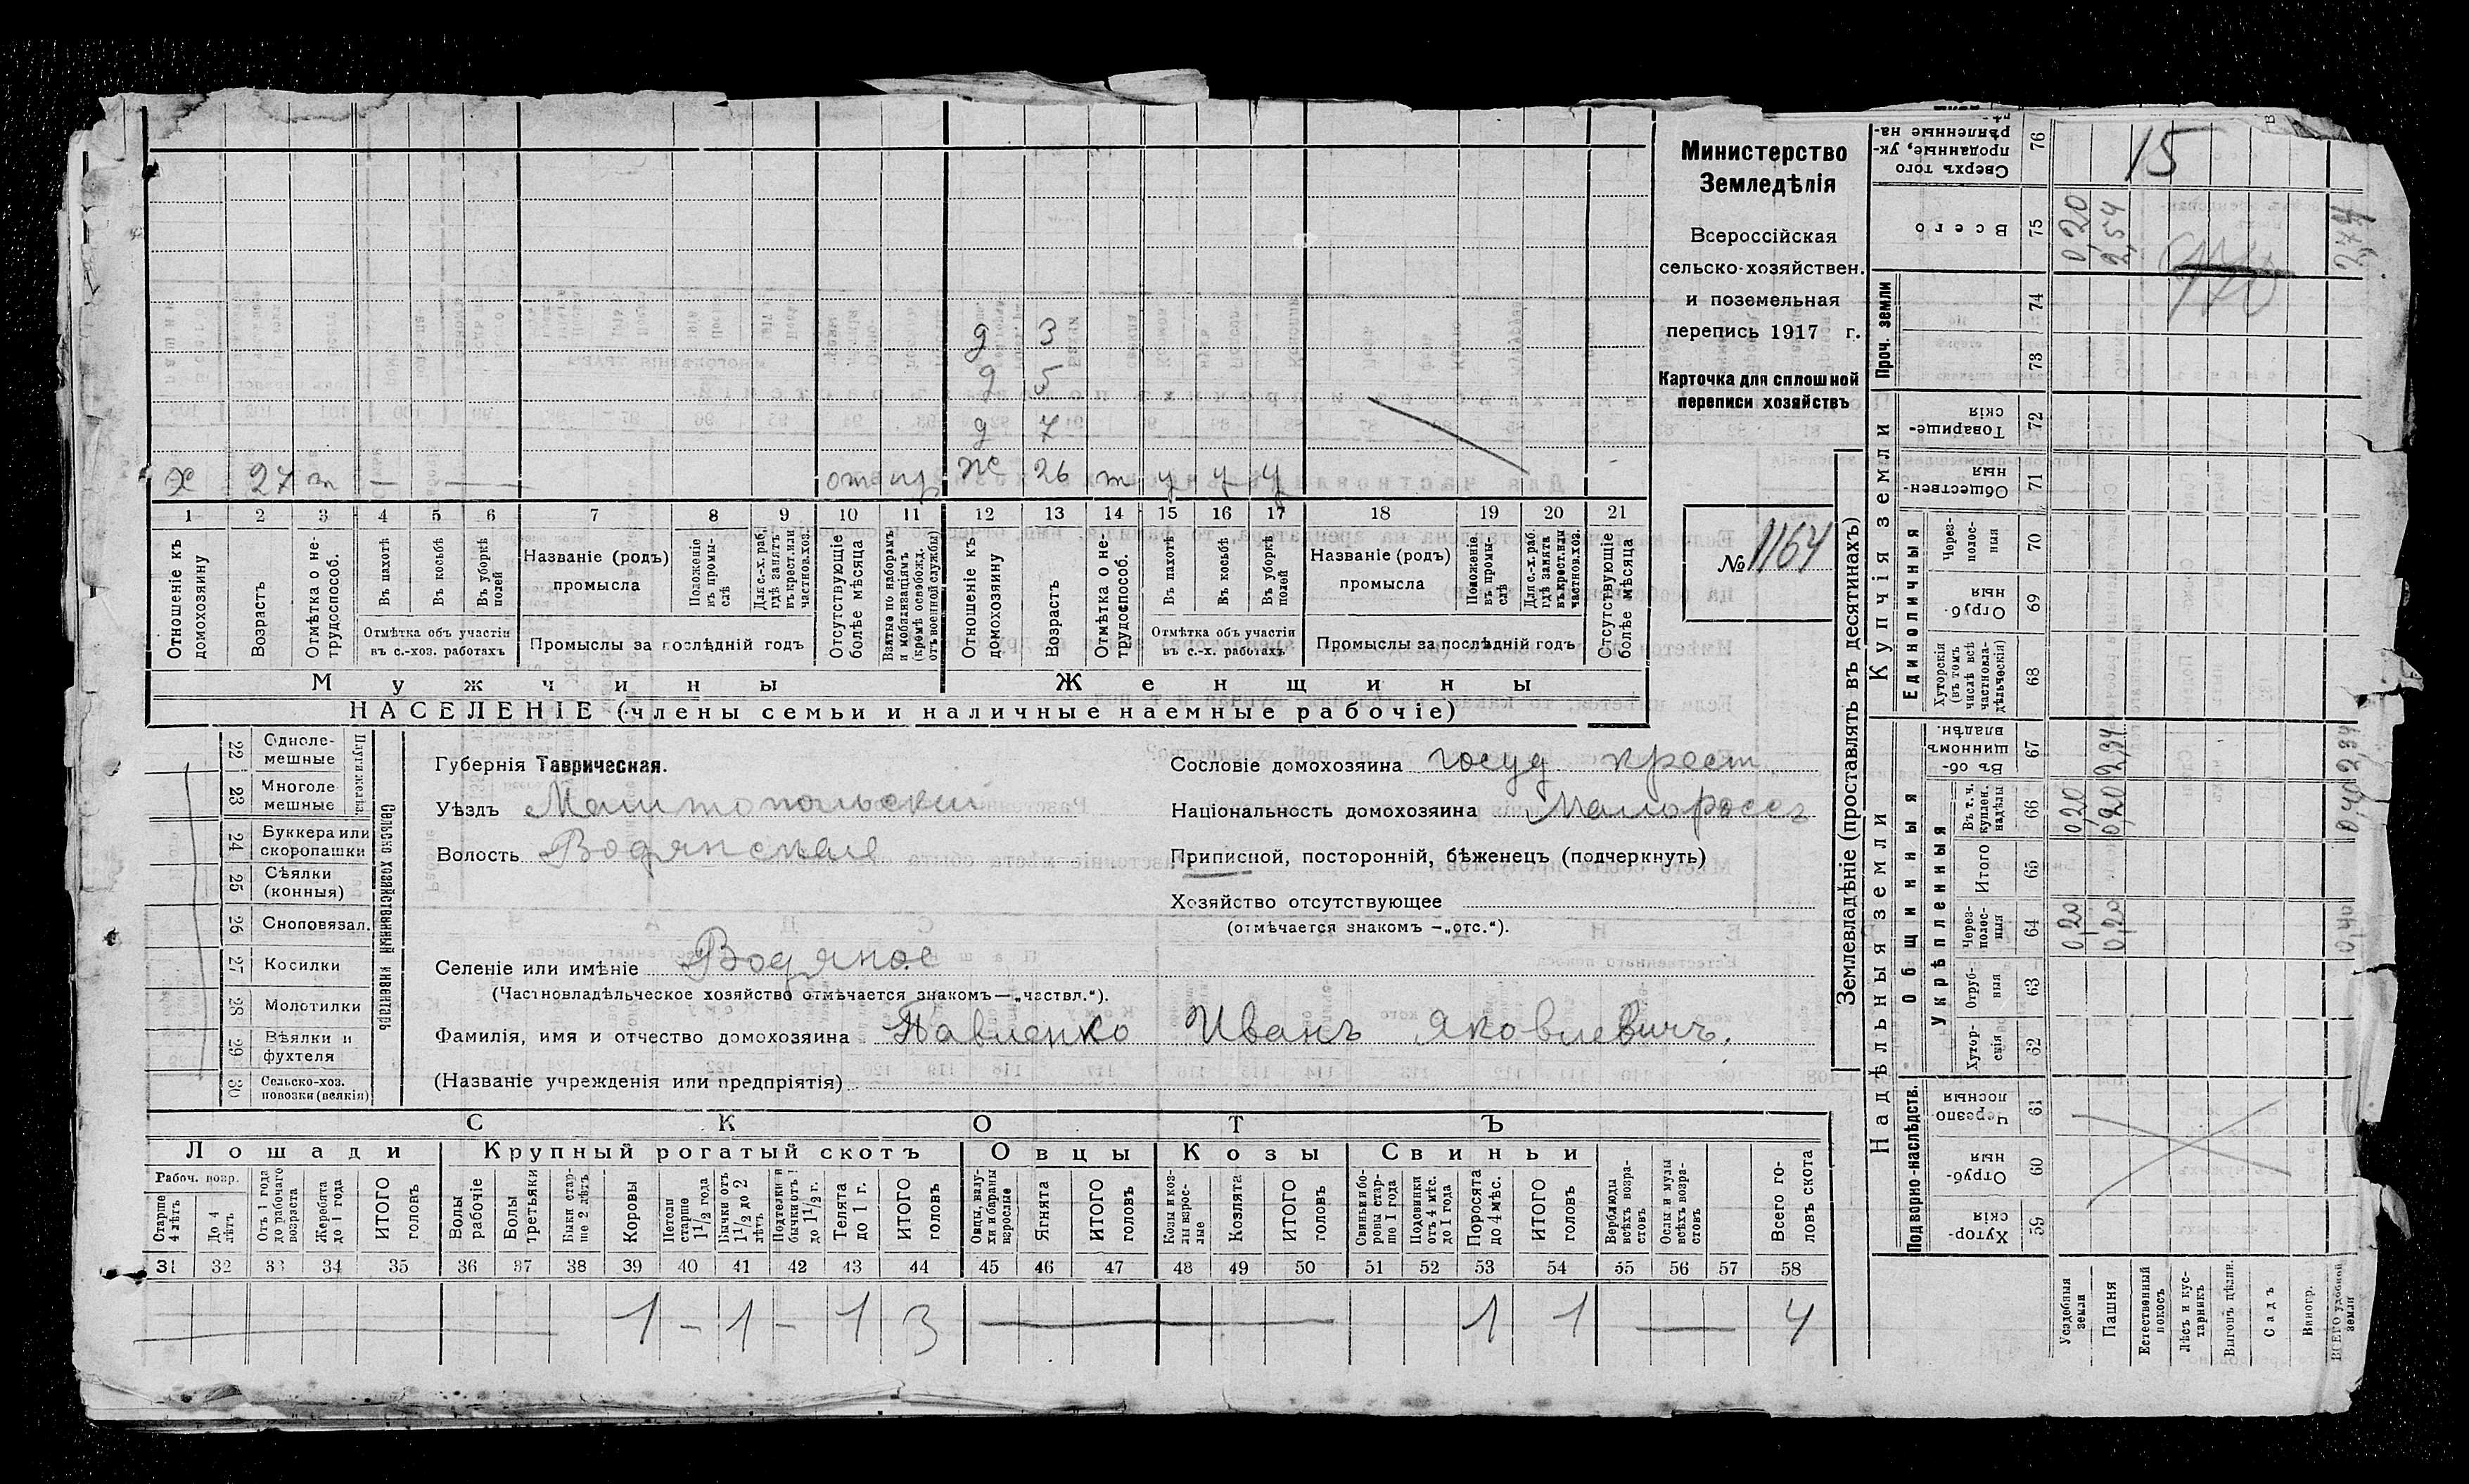 Министерство
Земледѣлія
Всероссійская
сельско-хозяйствен.
и поземельная
перепись 1917 г.
Карточка для сплошной
переписи хозяйствъ
№ 1164
д 3
д 5
д 7
х 27 т — — от пр ж 26 т у у у
1 2 3 4 5 6 7 8 9 10 11 12 13 14 15 16 17 18 19 20 21
Отношеніе къ домохозяину
Возрастъ
Отмѣтка о нетрудоспособ.
Въ пахотѣ
Въ косьбѣ
Въ уборкѣ полей
Отмѣтка объ участіи
въ с.-хоз. работахъ
Названіе (родъ)
промысла
Положеніе въ промыслѣ
Для с.-х. раб. гдѣ занятъ въ крест. или частнов. хоз.
Промыслы за послѣдній годъ
Отсутствующіе болѣе мѣсяца
Взятые по наборамъ и мобилизаціямъ (кромѣ освобожд. отъ военной службы)
Отношеніе къ домохозяину
Возрастъ
Отмѣтка о нетрудоспособ.
Въ пахотѣ
Въ косьбѣ
Въ уборкѣ полей
Отмѣтка объ участіи
въ с.-х. работахъ
Названіе (родъ)
промысла
Положеніе въ промыслѣ
Для с.-х. раб. гдѣ занята въ крест. или частнов. хоз.
Промыслы за послѣдній годъ
Отсутствующіе болѣе мѣсяца
Мужчины Женщины
НАСЕЛЕНІЕ (члены семьи и наличные наемные рабочіе)
Сельско хозяйственный инвентарь
22 Одноле-
мешные
23 Многоле
мешные
24 Буккера или
скоропашки
25 Сѣялки
(конныя)
26 Сноповязал.
27 Косилки
28 Молотилки
29 Вѣялки и
фухтеля
30 Сельско-хоз.
повозки (всякія)
Губернія Таврическая.
Уѣздъ Мелитопольскій
Волость Водянская
Селеніе или имѣніе Водяное
(Частновладѣльческое хозяйство отмѣчается знакомъ—„частвл.“).
Фамилія, имя и отчество домохозяина Павленко Иванъ Яковлевичъ.
(Названіе учрежденія или предпріятія)
Сословіе домохозяина госуд крест.
Національность домохозяина Малороссъ
Приписной, посторонній, бѣженецъ (подчеркнуть)
Хозяйство отсутствующее
(отмѣчается знакомъ —„отс.“).
СКОТЪ
Лошади Крупный рогатый скотъ Овцы Козы Свиньи
Рабоч. возр.
Старше 4 лѣтъ
До 4 лѣтъ
Отъ 1 года до рабочаго возраста
Жеребята до 1 года
ИТОГО головъ
Волы рабочіе
Волы третьяки
Быки старше 2 лѣтъ
Коровы
Нетели старше 1 1/2 года
Бычки отъ 1 1/2 до 2 лѣтъ
Подтелки и бычки отъ 1 до 1 1/2 г.
Телята до 1 г.
ИТОГО головъ
Овцы, валухи и бараны взрослые
Ягнята
ИТОГО головъ
Козы и козлы взрослые
Козлята
ИТОГО головъ
Свиньи и боровы старше 1 года
Подсвинки отъ 4 мѣс. до 1 года
Поросята до 4 мѣс.
ИТОГО головъ
Верблюды всѣхъ возрастовъ
Ослы и мулы всѣхъ возрастовъ
Всего головъ скота
31 32 33 34 35 36 37 38 39 40 41 42 43 44 45 46 47 48 49 50 51 52 53 54 55 56 57 58
1 - 1 - 1 3 — 1 1 — 4
Землевладѣніе (проставлять въ десятинахъ)
Надѣльныя земли
Купчія земли
Проч. земли
Подворно-наслѣдств.
Общинныя
Укрѣпленныя
Единоличныя
Сверхъ того проданные, укрѣпленные на-
76 15
Всего 75 0,20 2,54 2,74
74
73
Товарищескія 72
Общественныя 71
Черезполосныя 70
Отрубныя 69
Хуторскія (въ томъ числѣ всѣ частновладѣльческія) 68
Въ общинномъ владѣн. 67 2,34 2,34
Въ т. ч. куплен. надѣлы 66 0,20 0,20 0,40
Итого 65
Черезполосныя 64 0,20 0,20 0,40
Отрубныя 63
Хуторскія 62
Черезполосныя 61
Отрубныя 60
Хуторскія 59
Усадебныя земли
Пашня
Естественный покосъ
Лѣсъ и кустарникъ
Выгонъ цѣлин.
Садъ
Виногр.
ВСЕГО удобной земли